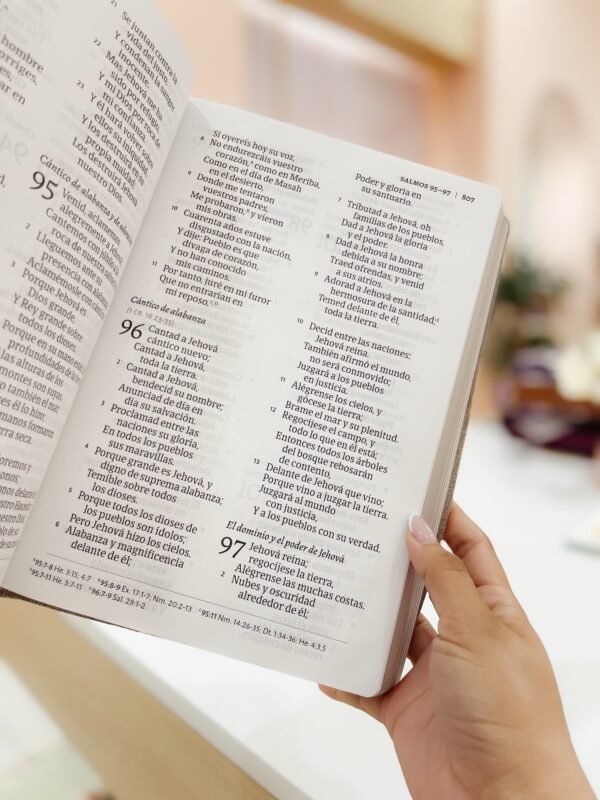 hombre
21 Se juntan contra la
vida del justo,
Y condenan la sangre
inocente.
22 Mas Jehová me ha
sido por refugio,
Y mi Dios por roca de
mi confianza.
23 Y él hará volver sobre
ellos su iniquidad,
Y los destruirá en su
propia maldad;
Los destruirá Jehová
nuestro Dios.
Cántico de alabanza y de
95 Venid, aclamemos
alegremente a Jehová;
Cantemos con júbilo a
roca de nuestra
2 Lleguemos ante su
presencia con alabanza;
Aclamémosle con
3 Porque Jehová es
Dios grande,
Y Rey grande sobre
todos los dioses.
Porque en su mano están
profundidades de la
las alturas de los
montes son suyas.
también el mar,
es él lo hizo;
manos formaron
tierra seca.
SALMOS 95–97 | 807
Si oyereis hoy su voz,
8 No endurezcáis vuestro
corazón, como en Meriba,
Como en el día de Masah
en el desierto,
9 Donde me tentaron
vuestros padres,
Me probaron, y vieron
mis obras.
10 Cuarenta años estuve
disgustado con la nación,
Y dije: Pueblo es que
divaga de corazón,
Y no han conocido
mis caminos.
11 Por tanto, juré en mi furor
Que no entrarían en
mi reposo.
Cántico de alabanza
(1 Cr. 16.23-33)
96 Cantad a Jehová
cántico nuevo;
Cantad a Jehová,
toda la tierra.
2 Cantad a Jehová,
bendecid su nombre;
Anunciad de día en
día su salvación.
3 Proclamad entre las
naciones su gloria,
En todos los pueblos
sus maravillas.
4 Porque grande es Jehová, y
digno de suprema alabanza;
Temible sobre todos
los dioses.
5 Porque todos los dioses de
los pueblos son ídolos;
Pero Jehová hizo los cielos.
6 Alabanza y magnificencia
delante de él;
Poder y gloria en
su santuario.
7 Tributad a Jehová, oh
familias de los pueblos,
Dad a Jehová la gloria
y el poder.
8 Dad a Jehová la honra
debida a su nombre;
Traed ofrendas, y venid
a sus atrios.
9 Adorad a Jehová en la
hermosura de la santidad;
Temed delante de él,
toda la tierra.
10 Decid entre las naciones:
Jehová reina.
También afirmó el mundo,
no será conmovido;
Juzgará a los pueblos
en justicia.
11 Alégrense los cielos, y
gócese la tierra;
Brame el mar y su plenitud.
12 Regocíjese el campo, y
todo lo que en él está;
Entonces todos los árboles
del bosque rebosarán
de contento,
13 Delante de Jehová que vino;
Porque vino a juzgar la tierra.
Juzgará al mundo
con justicia,
Y a los pueblos con su verdad.
El dominio y el poder de Jehová
97 Jehová reina;
regocíjese la tierra,
Alégrense las muchas costas.
2 Nubes y oscuridad
alrededor de él;
95:7-8 He. 3:15; 4:7 95:8-9 Ex. 17:1-7; Nm. 20:2-13 95:11 Nm. 14:26-35; Dt. 1:34-36; He. 4:3,5
95:7-11 He. 3:7-11 96:7-9 Sal. 29:1-2